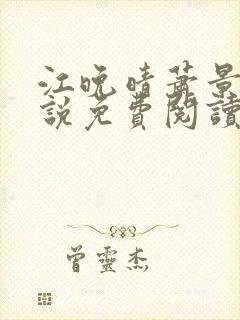 江晚晴蕭景
說免費閱讀
曾靈杰